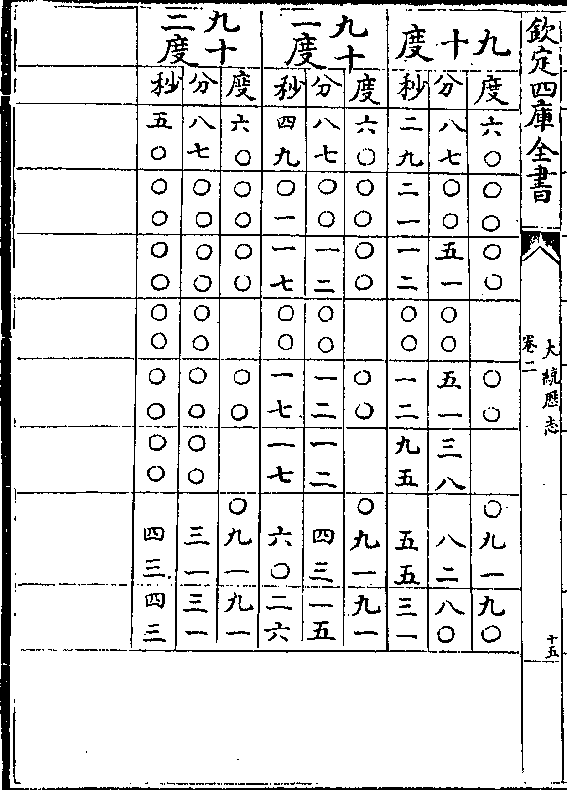 欽定四庫全書
大統歷志
卷二
十五
九十度
度 六〇 〇〇 〇〇 〇〇 〇九一 九〇
分 八七 〇〇 五一 〇〇 五一 三八 八二 八〇
秒 二九 二一 一二 〇〇 一二 九五 五五 三一
九十一度
度 六〇 〇〇 〇〇 〇〇 〇九一 九一
分 八七 〇〇 一二 〇〇 一二 一二 四三 一五
秒 四九 〇一 一七 〇〇 一七 一七 六〇 二六
九十二度
度 六〇 〇〇 〇〇 〇〇 〇九一 九一
分 八七 〇〇 〇〇 〇〇 〇〇 〇〇 三一 三一
秒 五〇 〇〇 〇〇 〇〇 〇〇 〇〇 四三 四三